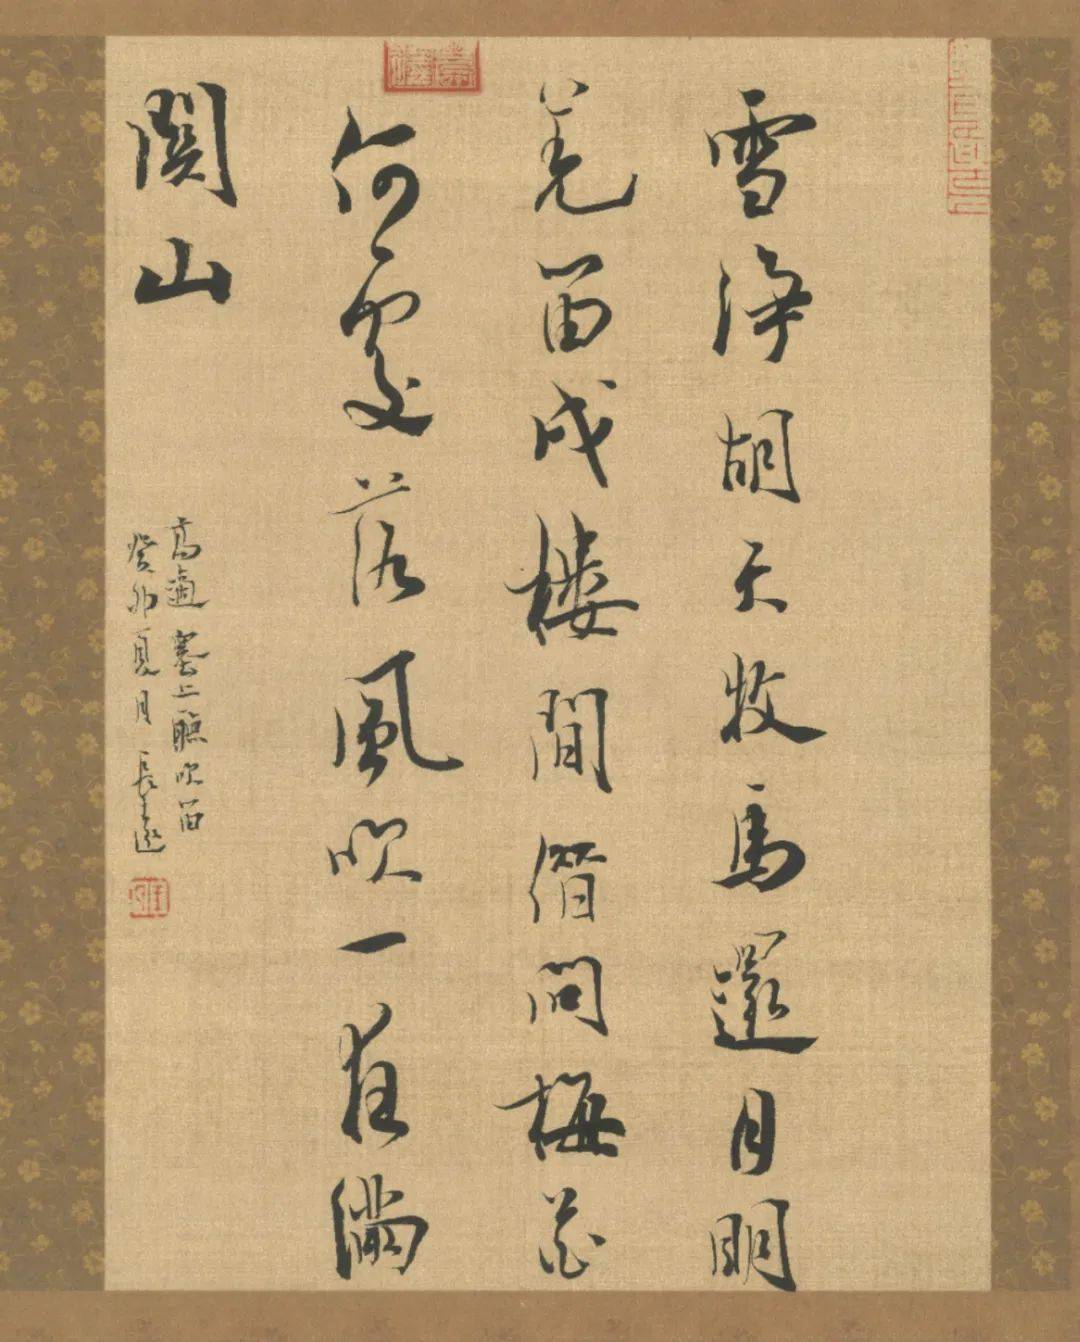 雪淨胡天牧馬還月明
羌笛戍樓間借問梅花
何處落風吹一夜滿
関山
高適塞上聽吹笛
癸卯夏月長